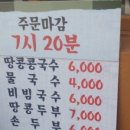 주문마감
7시 20분
땅콩콩국수 6,000
물국수 4,000
비빔국수 6,000
땅콩두부 7,000
손두부